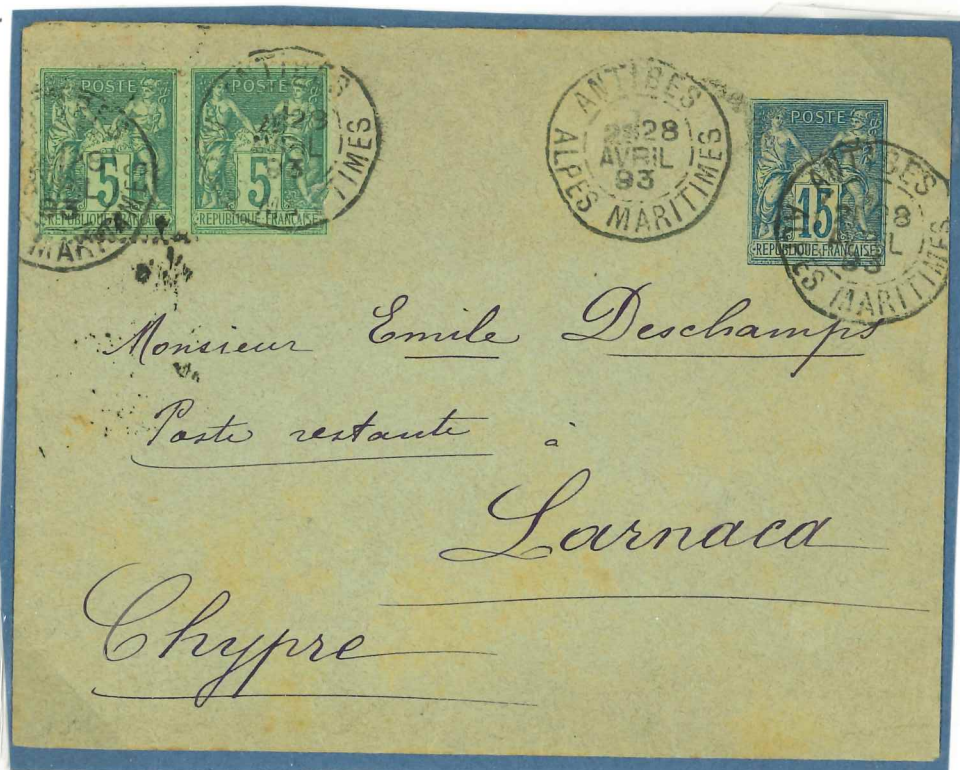 POSTE
5c
REPUBLIQUE FRANÇAISE
POSTE
5
REPUBLIQUE FRANÇAISE
ANTIBES
28
AVRIL
93
ALPES MARITIMES
ANTIBES
28
AVRIL
93
ALPES MARITIMES
POSTE
15
REPUBLIQUE FRANÇAISE
ANTIBES
28
93
ALPES MARITIMES
Monsieur Emile Deschamps
Poste restante à
Larnaca
Chypre